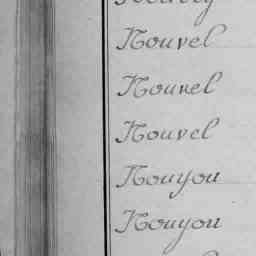 Nouvel
Nouvel
Nouvel
Nouyou
Nouyou